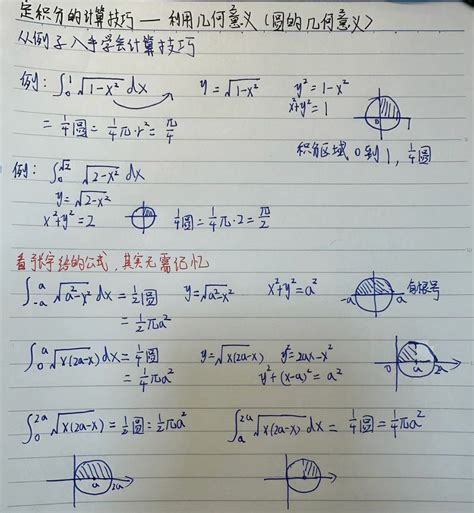 定积分的计算技巧——利用几何意义(圆的几何意义)
从例子入手学会计算技巧
例: ∫₀¹ √(1-x²) dx   y=√(1-x²)   y²=1-x²
x²+y²=1
= 1/4圆 = 1/4 π·r² = π/4
0   1
积分区域 0到1, 1/4圆
例: ∫₀^√2 √(2-x²) dx
y=√(2-x²)
x²+y²=2   1/4圆 = 1/4 π·2 = π/2
看张宇给的公式, 其实无需记忆
∫₋ₐ^a √(a²-x²) dx = 1/2圆   y=√(a²-x²)   x²+y²=a²   -a   a   有根号
= 1/2 πa²
∫₀^a √(x(2a-x)) dx = 1/4圆   y=√(x(2a-x))   y²=2ax-x²   0   a   2a
= 1/4 πa²   y²+(x-a)²=a²
∫₀^2a √(x(2a-x)) = 1/2圆 = 1/2 πa²   ∫ₐ^2a √(x(2a-x)) dx = 1/4圆 = 1/4 πa²
a   2a